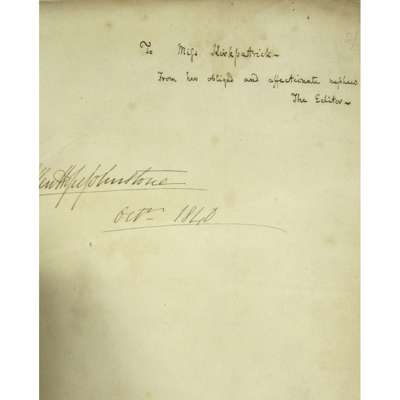 To Miss Kirkpatrick –
From her obliged and affectionate nephew
The Editor –
Johnstone
Octr 1840